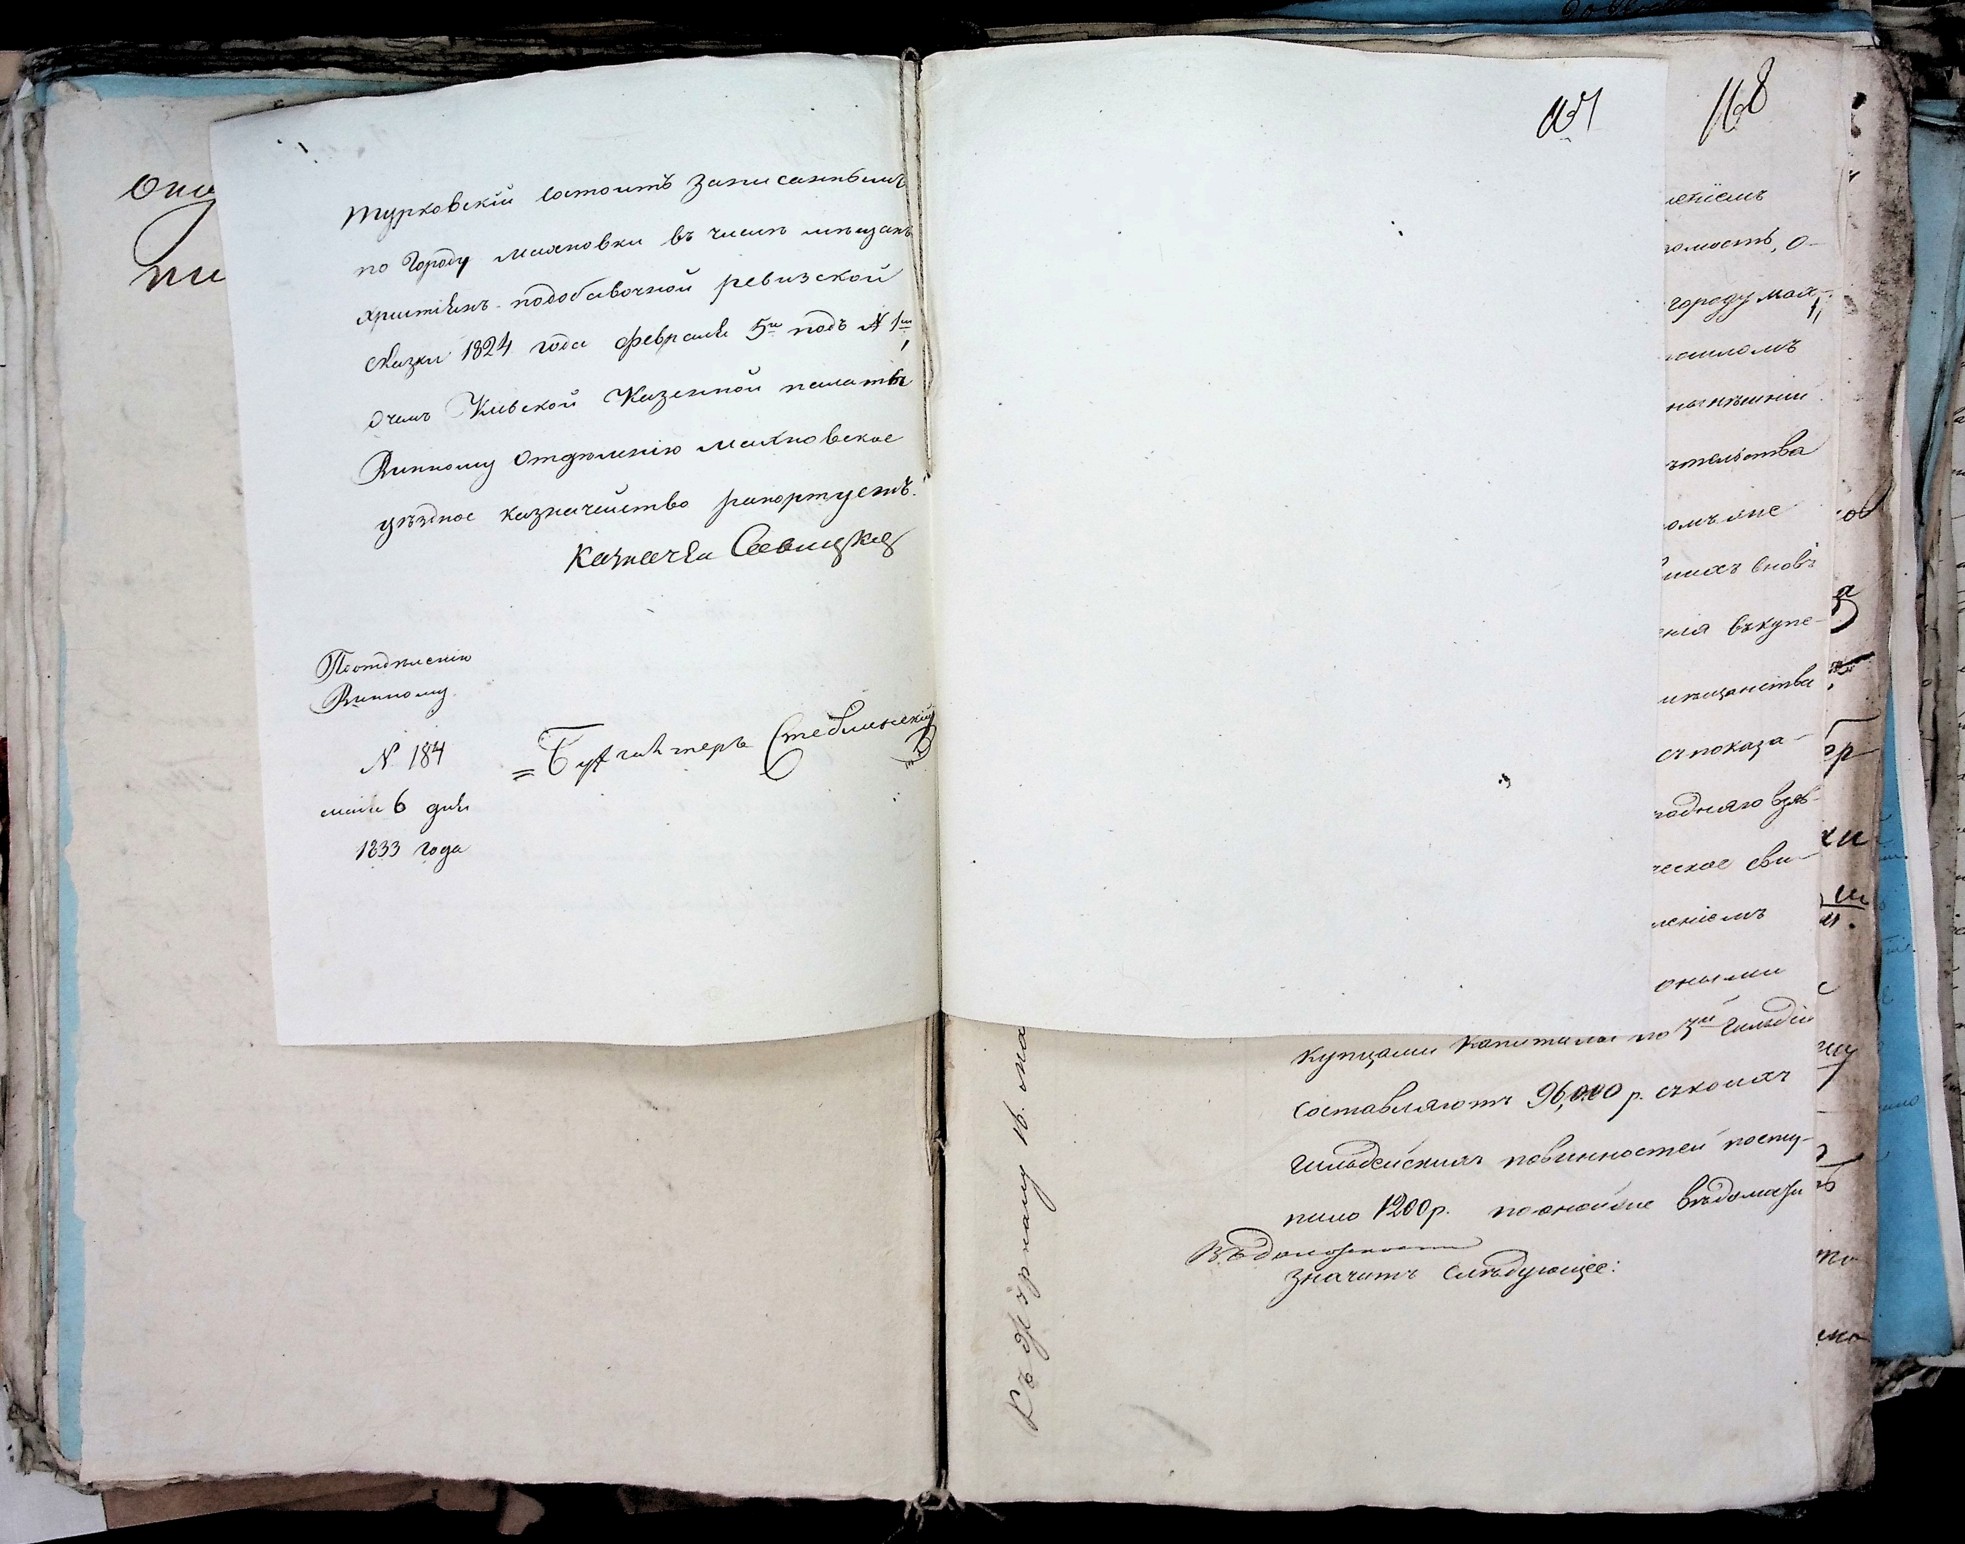 Турковскій состоитъ записаннымъ
по Городу Махновки въ числѣ мѣщанъ
христіянъ подобавочной ревизской
сказки 1824 года февраля 5го подъ № 1м,
очемъ Кіевской Казенной палаты
Винному Отдѣленію Махновское
уѣздное казначейство рапортуетъ.
Казначей Савицкій
Поотдѣленію
Винному
№ 184
= Бухгалтеръ Стеблинскій
маія 6 дня
1833 года
168
леніемъ
омость, о-
городу Мах-
нынѣшній
ѣтельства
вновь
енія въкупе-
мѣщанства
съпоказа-
ческое сви-
леніемъ
оными
купцами капиталы по 3й Гильдіи
составляютъ 96,000 р. съкоихъ
гильдейскихъ повинностей посту-
пило 1200 р. поонойже вѣдомости
значитъ слѣдующее:
Къ журналу 16. ма